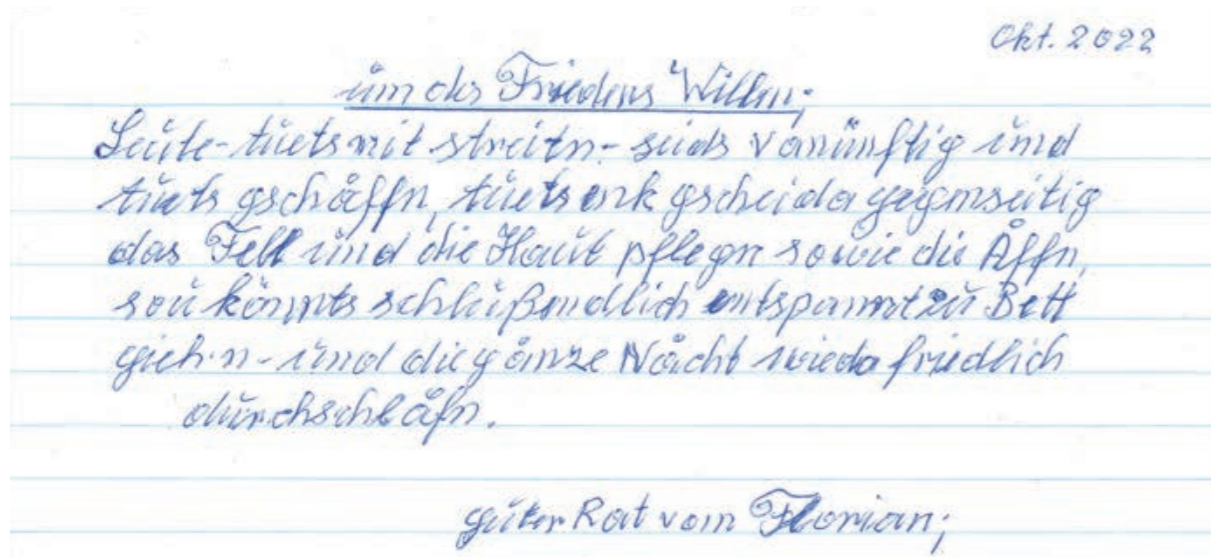 Okt. 2022
um des Friedens Willen;
Leute - tuets nit streitn - seids vanünftig und
tuets gschåffn, tuets enk gscheida gegenseitig
das Fell und die Haut pflegn sowie die Åffn,
sou könnts schlußendlich entspannt zu Bett
gieh·n - und die gånze Nåcht wieda friedlich
durchschlåfn.
guter Rat vom Florian;